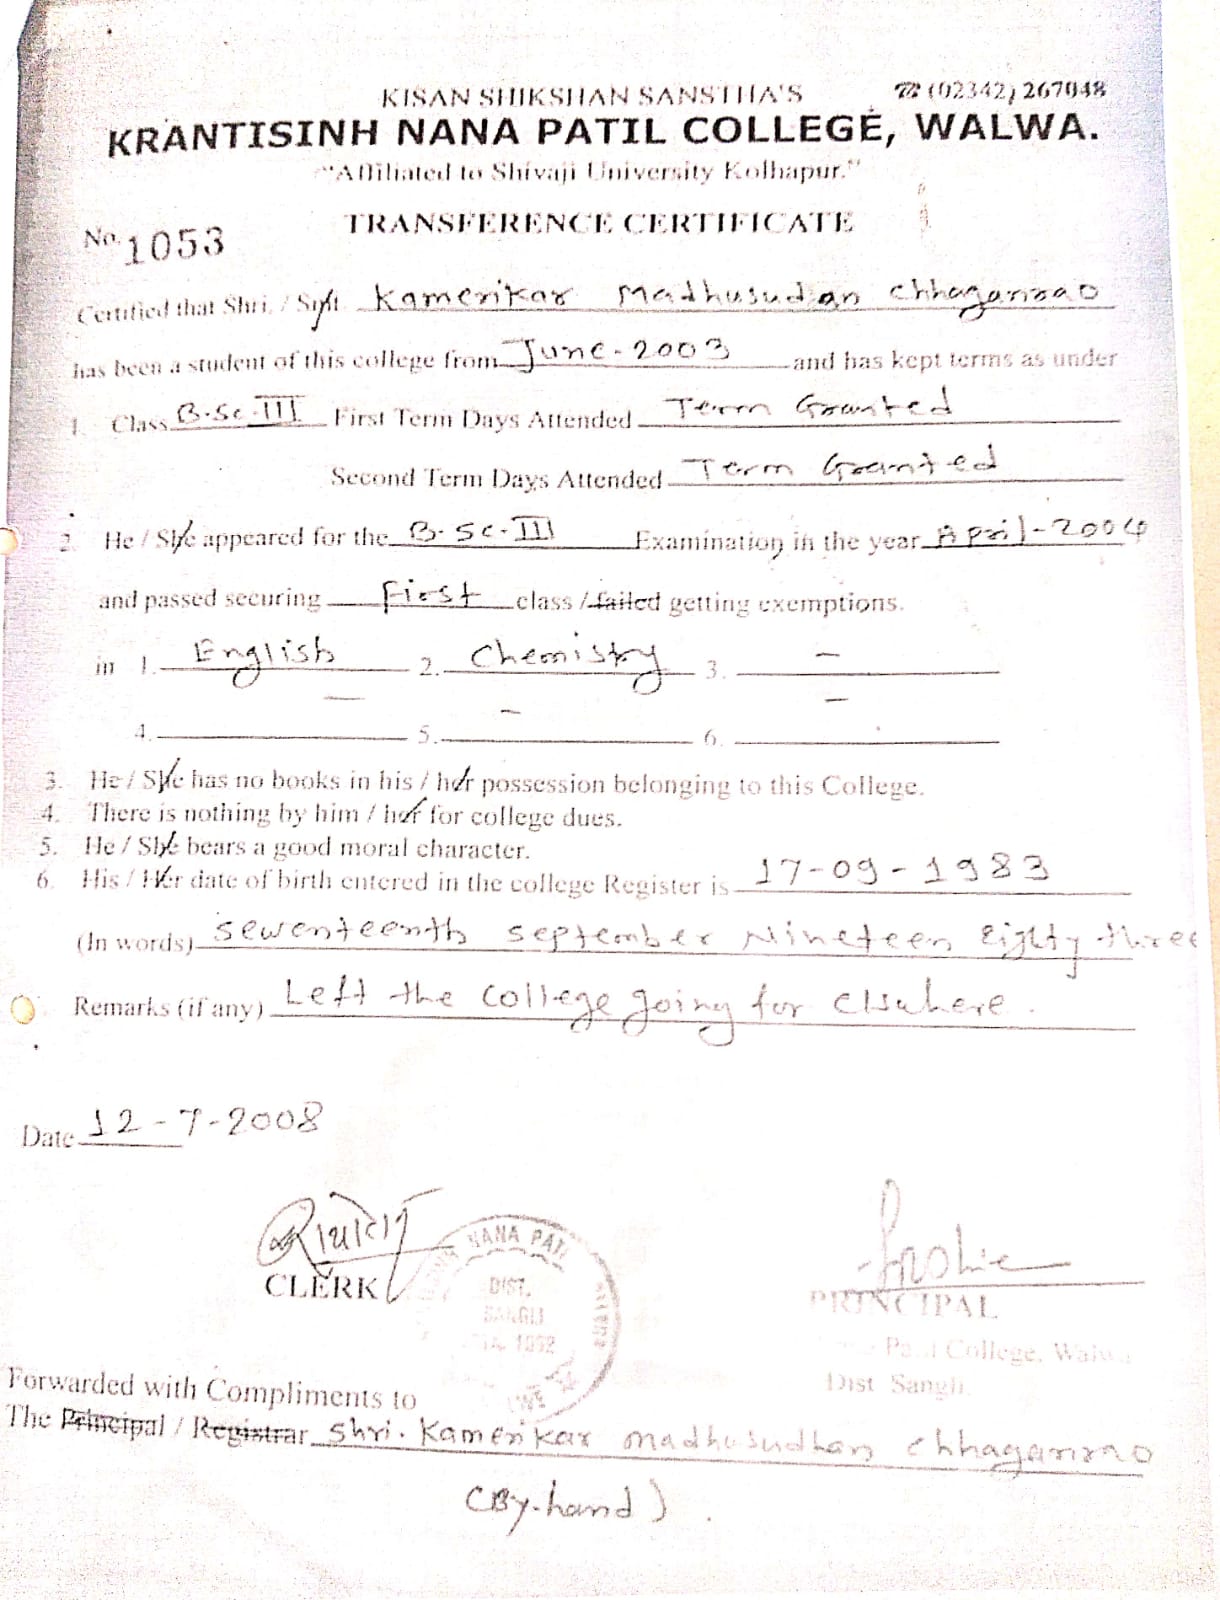 KISAN SHIKSHAN SANSTHA'S ☎ (02342) 267048
KRANTISINH NANA PATIL COLLEGE, WALWA.
"Affiliated to Shivaji University Kolhapur."
TRANSFERENCE CERTIFICATE
No. 1053
Certified that Shri. / Smt. Kamerikar Madhusudan Chhaganrao
has been a student of this college from June-2003 and has kept terms as under
1. Class B.Sc.III First Term Days Attended Term Granted
Second Term Days Attended Term Granted
2. He / She appeared for the B.Sc.III Examination in the year April-2004
and passed securing First class / failed getting exemptions.
in 1. English 2. Chemistry 3. —
4. — 5. — 6. —
3. He / She has no books in his / her possession belonging to this College.
4. There is nothing by him / her for college dues.
5. He / She bears a good moral character.
6. His / Her date of birth entered in the college Register is 17-09-1983
(In words) Sewenteenth September Nineteen Eighty three
Remarks (if any) Left the College going for Elsuhere.
Date 12-7-2008
CLERK
NANA PATIL
DIST.
SANGLI
PRINCIPAL
Patil College, Walwa
Dist Sangli
Forwarded with Compliments to
The Principal / Registrar Shri. Kamerikar Madhusudhan Chhaganrao
(By-hand).